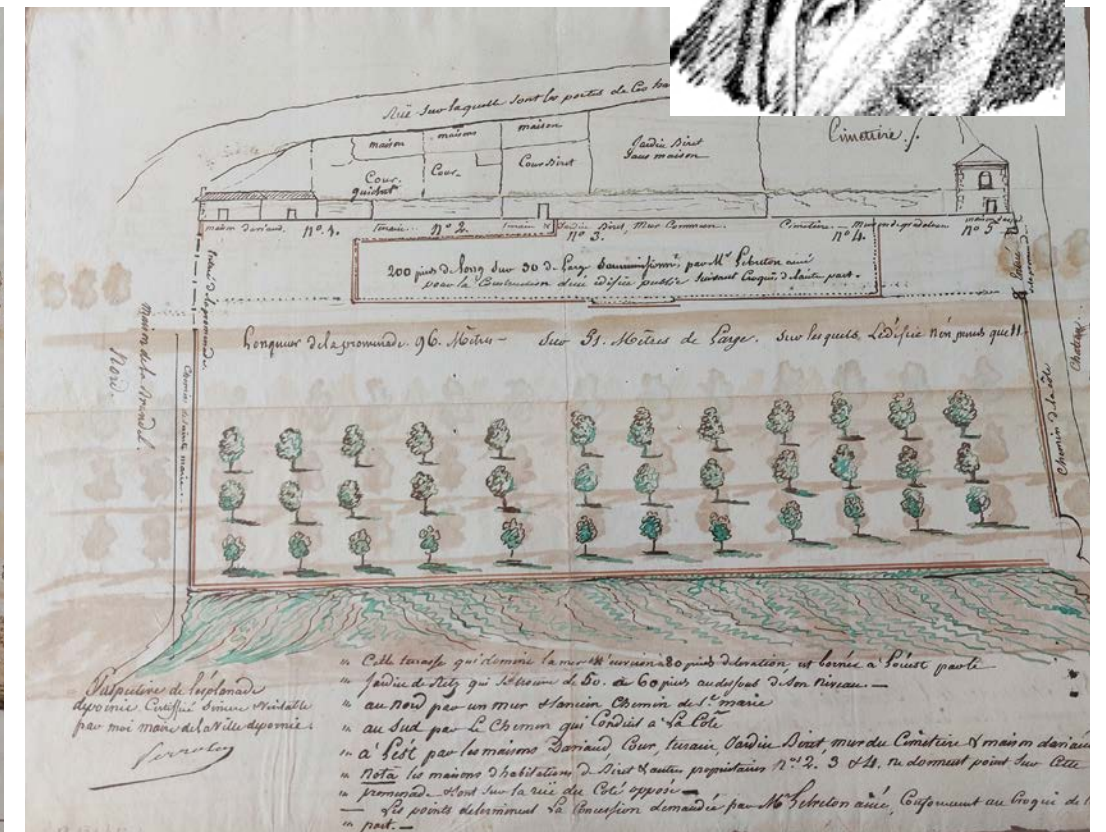 Rüe sur laquelle sont les portes de ces
maison
maisons
maison
Jardin Biret
Sans maison
Cimetière ./.
Cour
Cour
Cour Biret
maison dariaud. n° 1.
terrain... n° 2.
terrain &
Jardin Biret, Mur Commun
n° 3.
Cimetière. — Mur
n° 4.
n° 5
200 pieds de long sur 30 de large Soumissionné, par Mr Lebreton ainé
pour la Construction d'un édifice public suivant Croquis d'autre part.
Entrée de la promenade.
Longueur de la promenade. 96. Mètres — Sur 51. Mètres de large. Sur lesquels L'édifice n'en prends que 11.
maison de la
Nord.
Chemin de Sainte marie.
Chemin de la côte
Chateau
Perspective de l'esplanade
depornic. Certiffié Sincere & Véritable
par moi maire de la Ville depornic.
" Cette terrasse qui domine la mer d'environ 80 pieds d'elevation, est bornée a l'ouest par le
" Jardin de Retz qui se trouve de 50. à 60 pieds audessous de son Niveau. —
" au Nord par un mur & l'ancien Chemin de Ste marie
" au Sud par Le Chemin qui Conduit a La Cote
" a l'est par les maisons Dariaud, Cour, terrain, Jardin Biret, mur du Cimetière & maison dariaud
" Nota les maisons d'habitations de Biret & autres propriétaires nos. 2. 3 & 4. ne donnent point Sur Cette
" promenade & sont Sur la rüe du Coté opposé —
— Les points determinent La Concession demandée par Mr Lebreton ainé, Conforment au Croquis de
" part. —